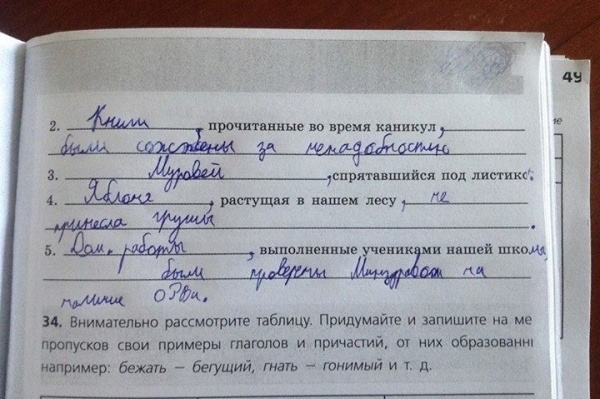 49
2. Книги, прочитанные во время каникул,
были сожжены за ненадобностью
3. Муравей, спрятавшийся под листико.
4. Яблоня, растущая в нашем лесу, не
принесла грушы.
5. Дом. работы, выполненные учениками нашей школы,
были проверены Минздравом на
наличие ОРВи.
34. Внимательно рассмотрите таблицу. Придумайте и запишите на ме
пропусков свои примеры глаголов и причастий, от них образованн
например: бежать – бегущий, гнать – гонимый и т. д.